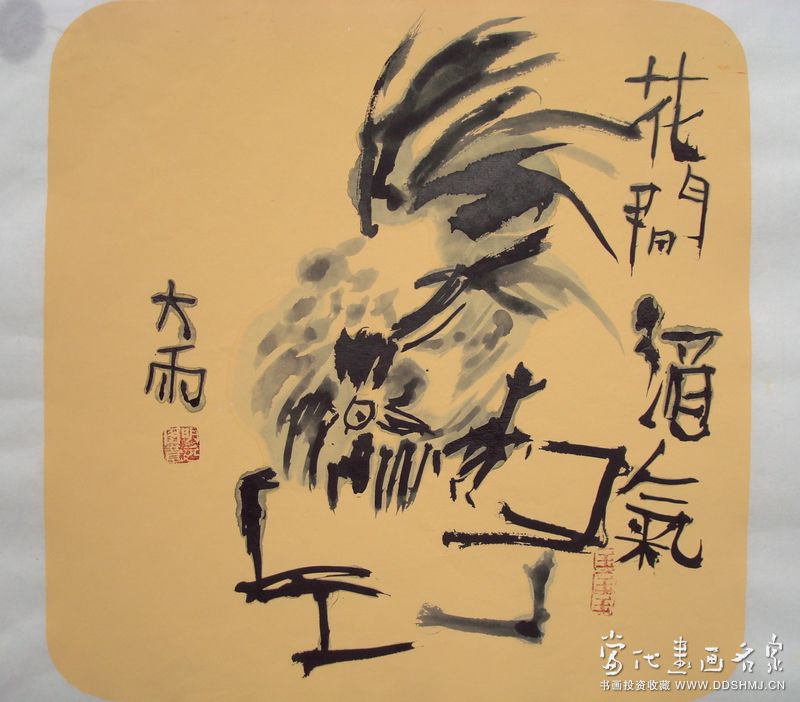 花間酒氣
大雨
當代書画名家
书画投资收藏 WWW.DDSHMJ.CN